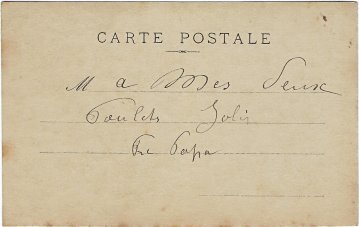 CARTE POSTALE
M a Mes Deux
Poulets Jolis
Fe Papa